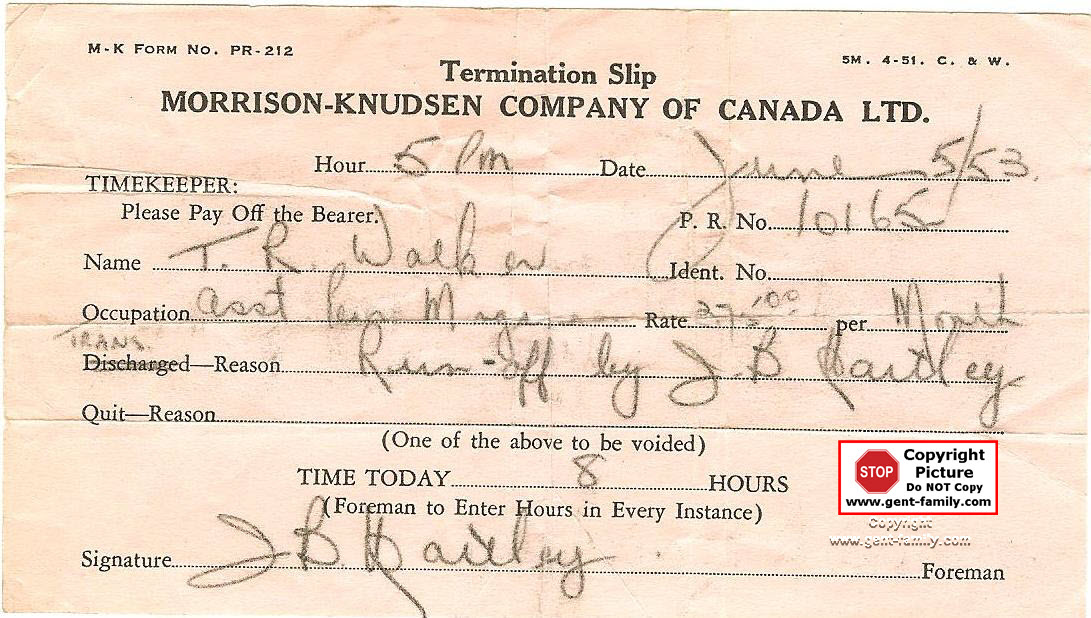 M-K FORM NO. PR-212
5M. 4-51. C. & W.
Termination Slip
MORRISON-KNUDSEN COMPANY OF CANADA LTD.
Hour 5 Pm Date June 5/53.
TIMEKEEPER:
Please Pay Off the Bearer.
P. R. No. 10165
Name T. R. Walker
Ident. No.
Occupation asst Rate 275.00 per Month
TRANS.
Discharged—Reason Run-off by J B Hartley
Quit—Reason
(One of the above to be voided)
TIME TODAY 8 HOURS
(Foreman to Enter Hours in Every Instance)
Signature J B Hartley Foreman
STOP
Copyright
Picture
Do NOT Copy
www.gent-family.com
Copyright
www.gent-family.com